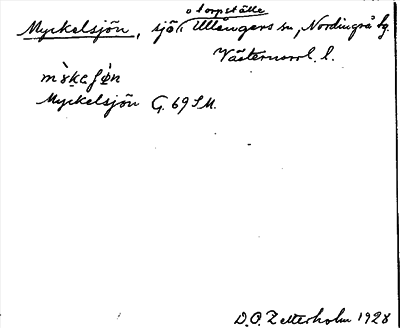 o torpställe
Myckelsjön, sjö i Ullångers sn, Nordingrå tg.
Västernorrl. l.
Myckelsjön G. 69 S M.
D.O. Zetterholm 1928